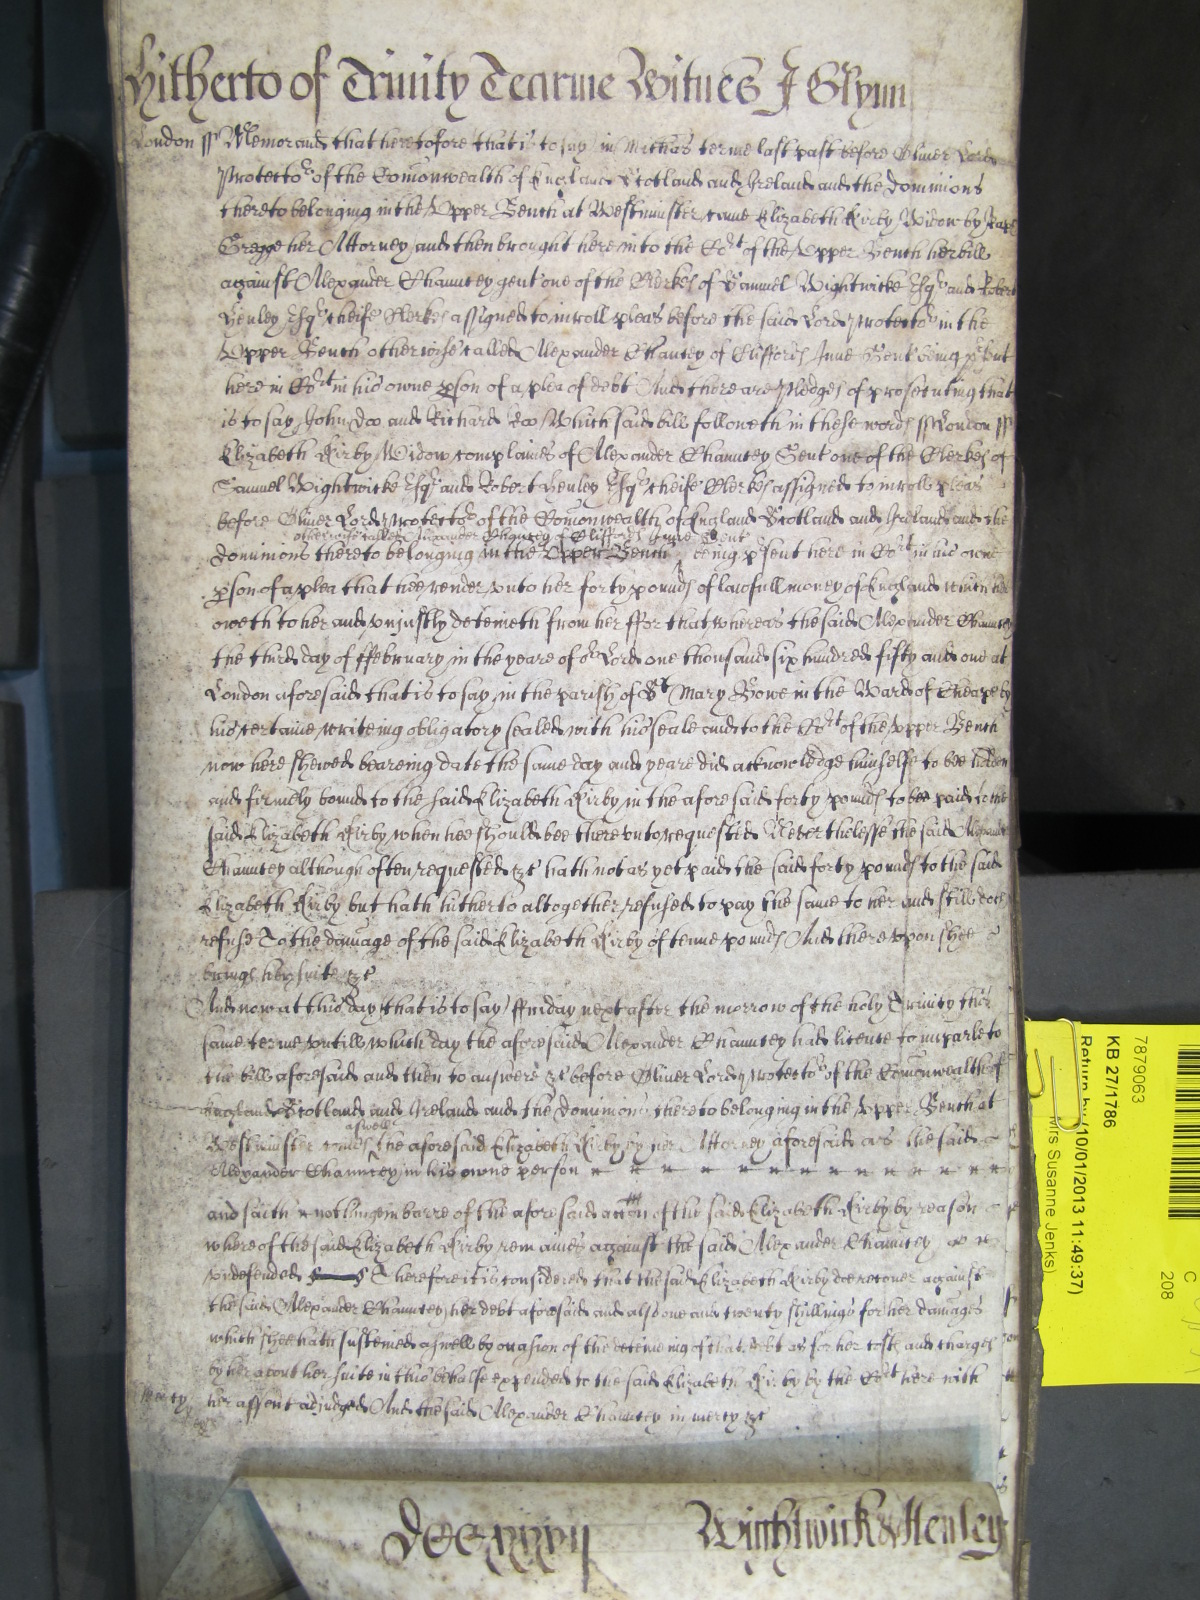 Hitherto of Trinity Tearme Witnes J Glynn
London ss Memorand that heretofore that is to say in Michas terme last past before Oliver Lord
Protector of the Comonwealth of England Scotland and Ireland and the dominions
thereto belonging in the Upper Bench at Westminster came Elizabeth Kirby Widow by
Gregge her Attorney and then brought here into the Cort of the Upper Bench her bill
against Alexander Chauncey gent one of the Clerkes of Samuel Wightwicke Esqr and Robert
Henley Esqr cheife Clerkes assigned to inroll pleas before the said Lord Protector in the
Upper Bench otherwise called Alexander Chauncey of Cliffords Inne Gent being psent
here in Cort in his owne pson of a plea of debt And there are pledges of prosecuting that
is to say John Doo and Richard Roo Which said bill followeth in these words ss London ss
Elizabeth Kirby Widow complaines of Alexander Chauncey Gent one of the Clerkes of
Samuel Wightwicke Esqr and Robert Henley Esqr cheife Clerkes assigned to inroll pleas
before Oliver Lord Protector of the Comonwealth of England Scotland and Ireland and the
otherwise called Alexander Chauncey of Cliffords Inne Gent
dominions thereto belonging in the Upper Bench being psent here in Cort in his owne
pson of a plea that hee render unto her forty pounds of lawfull money of England which hee
oweth to her and unjustly deteineth from her ffor that whereas the said Alexander Chauncey
the third day of ffebruary in the yeare of or Lord one thousand six hundred fifty and one at
London aforesaid that is to say in the parish of St Mary Bowe in the Ward of Cheape by
his certaine writeing obligatory sealed with his seale and to the Cort of the upper Bench
now here shewed beareing date the same day and yeare did acknowledge himselfe to bee holden
and firmely bound to the said Elizabeth Kirby in the aforesaid forty pounds to bee paid to the
said Elizabeth Kirby when hee should bee thereunto requested Neverthelesse the said Alexander
Chauncey although often requested &c hath not as yet paid the said forty pounds to the said
Elizabeth Kirby but hath hitherto altogether refused to pay the same to her and still doth
refuse To the damage of the said Elizabeth Kirby of tenne pounds And thereupon shee
brings her suite &c
And now at this day that is to say ffriday next after the morrow of the holy Trinity this
same terme untill which day the aforesaid Alexander Chauncey had licence to imparle to
the bill aforesaid and then to answere &c before Oliver Lord Protector of the Comonwealth of
England Scotland and Ireland and the dominions thereto belonging in the Upper Bench at
aswell
Westminster comes the aforesaid Elizabeth Kirby by her Attorney aforesaid as the said
Alexander Chauncey in his owne person
and saith nothing in barre of the aforesaid accon of the said Elizabeth Kirby by reason
whereof the said Elizabeth Kirby remaines against the said Alexander Chauncey
undefended Therefore it is considered that the said Elizabeth Kirby doe recover against
the said Alexander Chauncey her debt aforesaid and alsoe one and twenty shillings for her damages
which shee hath susteined aswell by occasion of the deteineing of that debt as for her costs and charges
by her about her suite in this behalfe expended to the said Elizabeth Kirby by the Cort here with
mercy
her assent adjudged And the said Alexander Chauncey in mercy &c
Wightwick & Henley
7879063
KB 27/1786
Return by (10/01/2013 11:49:37)
Mrs Susanne Jenks)
C
208